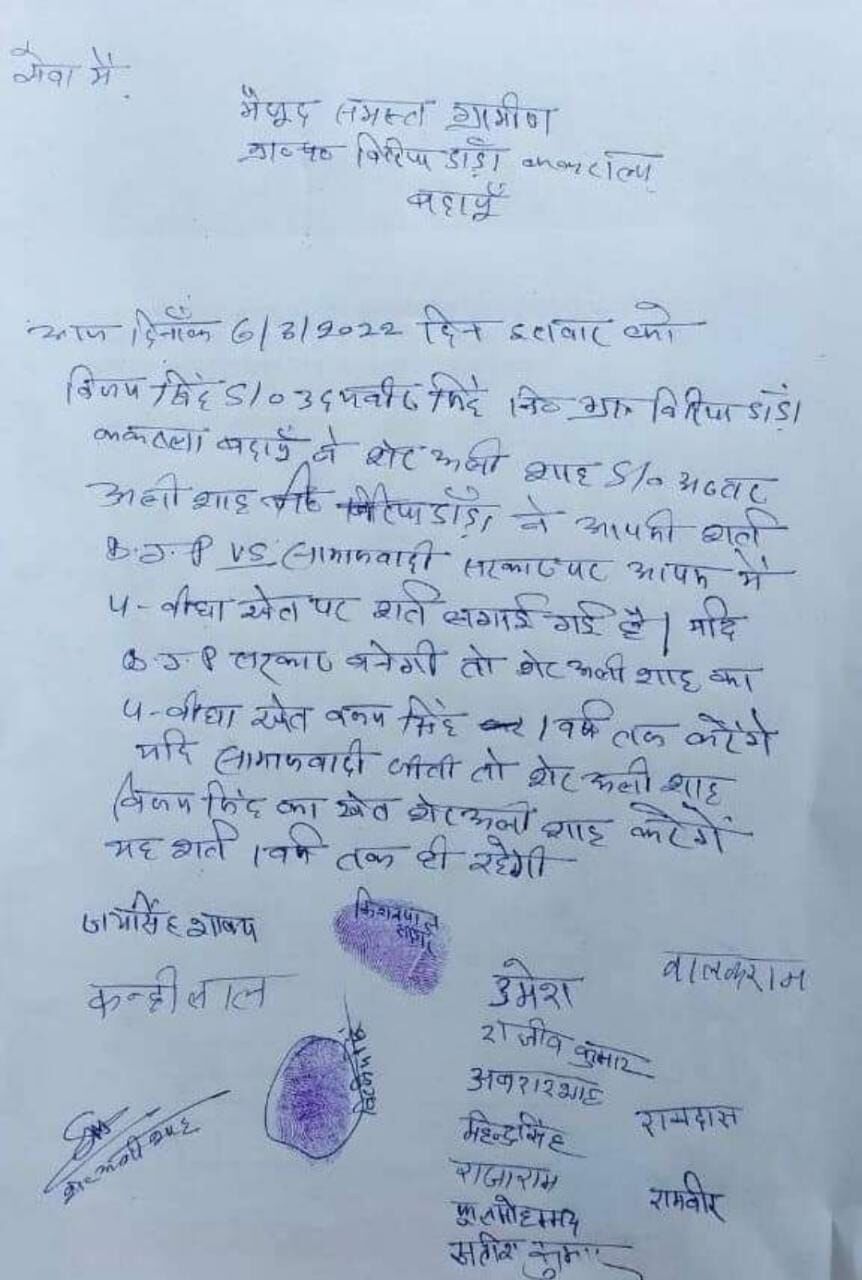 सेवा में,
मौजूद समस्त ग्रामीण
ग्राम व पो० बिरिया डांडी ककराला
बदायूँ
आज दिनाँक 6/3/2022 दिन इतवार को
विजय सिंह S/o उदयवीर सिंह नि० ग्राम बिरिया डांडी
ककराला बदायूँ ने शेर अली शाह S/o
अली शाह बिरिया डांडी ने आपसी शर्त
B.J.P VS समाजवादी सरकार पर आपस में
4-बीघा खेत पर शर्त लगाई गई है। यदि
B.J.P सरकार बनेगी तो शेर अली शाह का
4-बीघा खेत विजय सिंह 1 वर्ष तक करेंगे
यदि समाजवादी जीती तो शेर अली शाह
विजय सिंह का खेत शेर अली शाह करेंगें
यह शर्त 1 वर्ष तक ही रहेगी
जयसिंह शाक्य
किशनपाल
कन्हीलाल
उमेश
बालकराम
राजीव कुमार
विजय सिंह
अबरार शाह
रामदास
महेन्द्र सिंह
शेर अली शाह
राजाराम
रामवीर
फूल मोहम्मद
सतीश कुमार